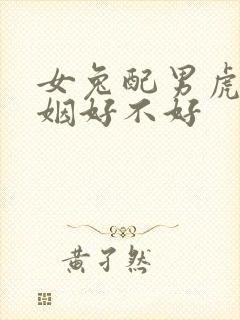 女兔配男虎
姻好不好
黄孑然